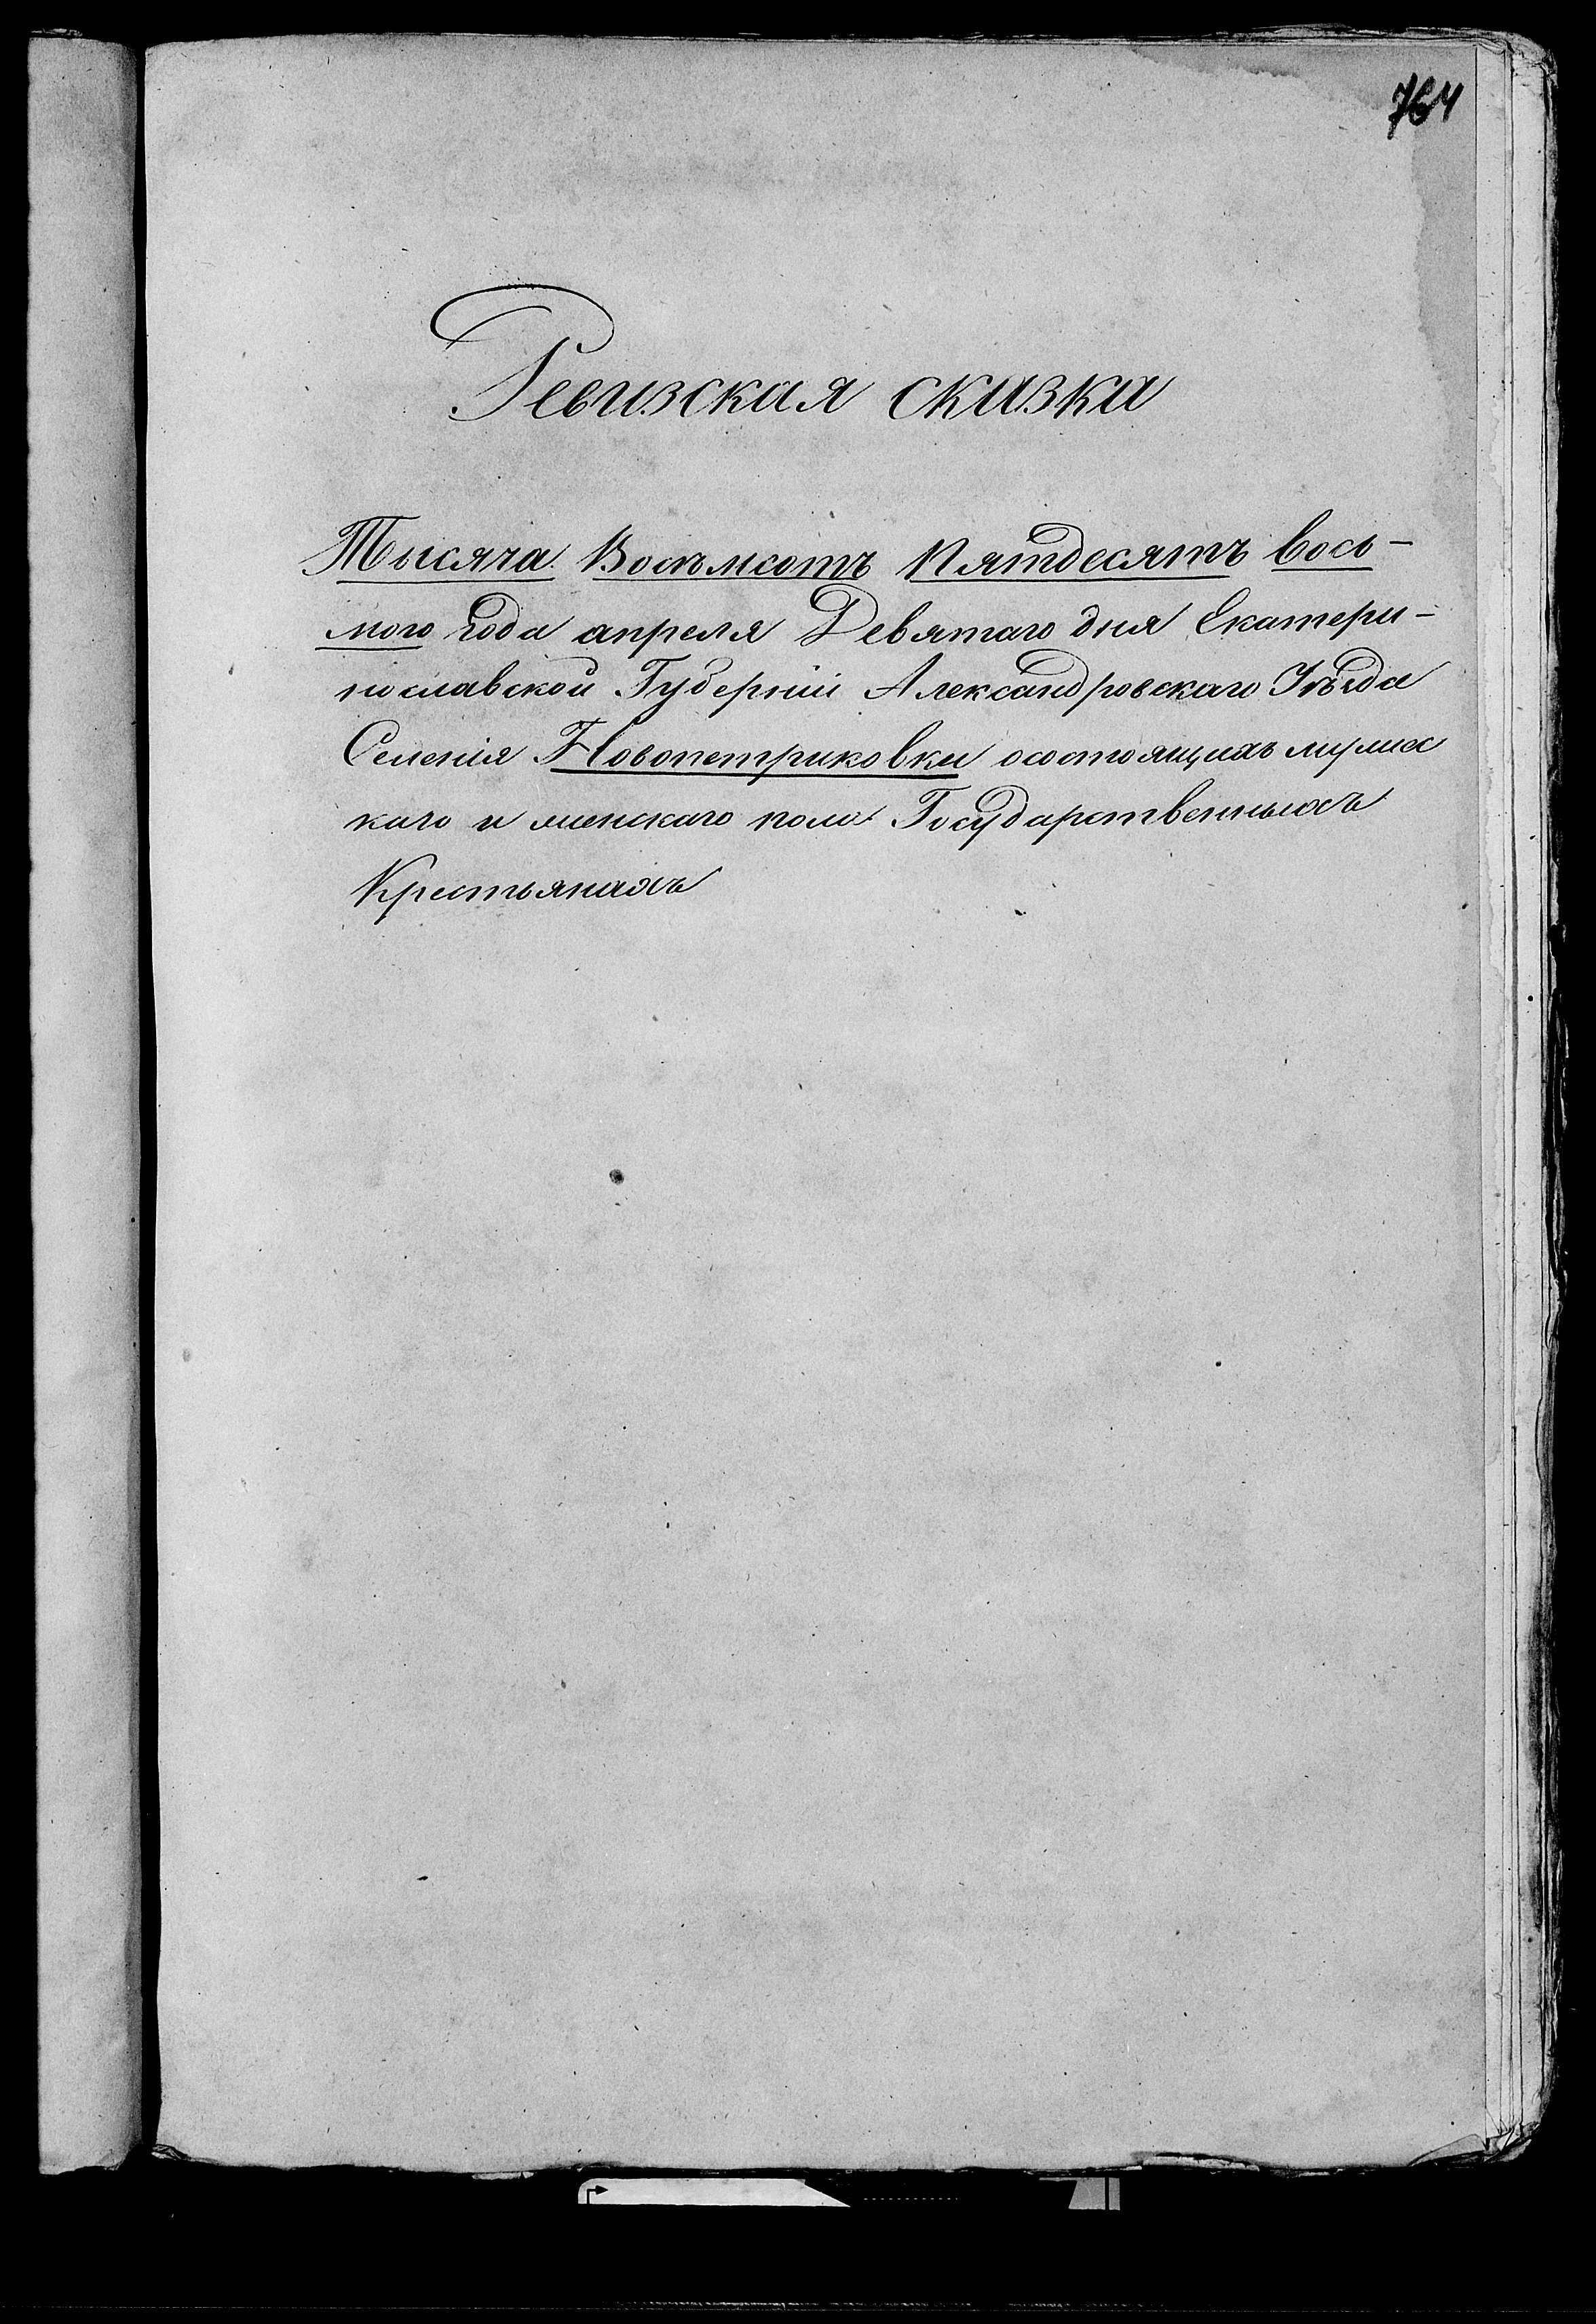 764
Ревизская сказка
Тысяча Восемсотъ Пятдесятъ вось-
мого года апреля Девятаго дня Екатери-
нославской Губерніи Александровскаго Уѣзда
Селенія Новопетриковки осостоящихъ мужес
каго и женскаго пола Государственныхъ
Крестьянахъ